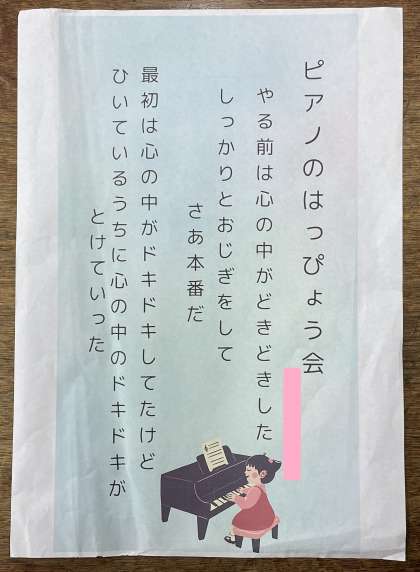 ピアノのはっぴょう会
やる前は心の中がどきどきした
しっかりとおじぎをして
さあ本番だ
最初は心の中がドキドキしてたけど
ひいているうちに心の中のドキドキが
とけていった